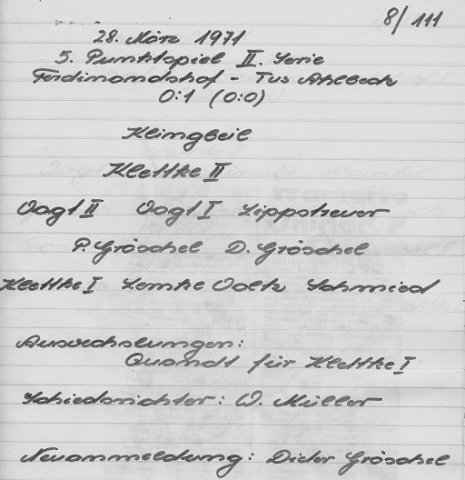 8/111
28. März 1971
5. Punktspiel II. Serie
Ferdinandshof - Tus Ahlbeck
0:1 (0:0)
Klingbeil
Klettke II
Vogt II Vogt I Lippstreuer
P. Gröschel D. Gröschel
Klettke I Lemke Voltz Schmied
Auswechslungen:
Quandt für Klettke I
Schiedsrichter: W. Müller
Neuanmeldung: Dieter Gröschel